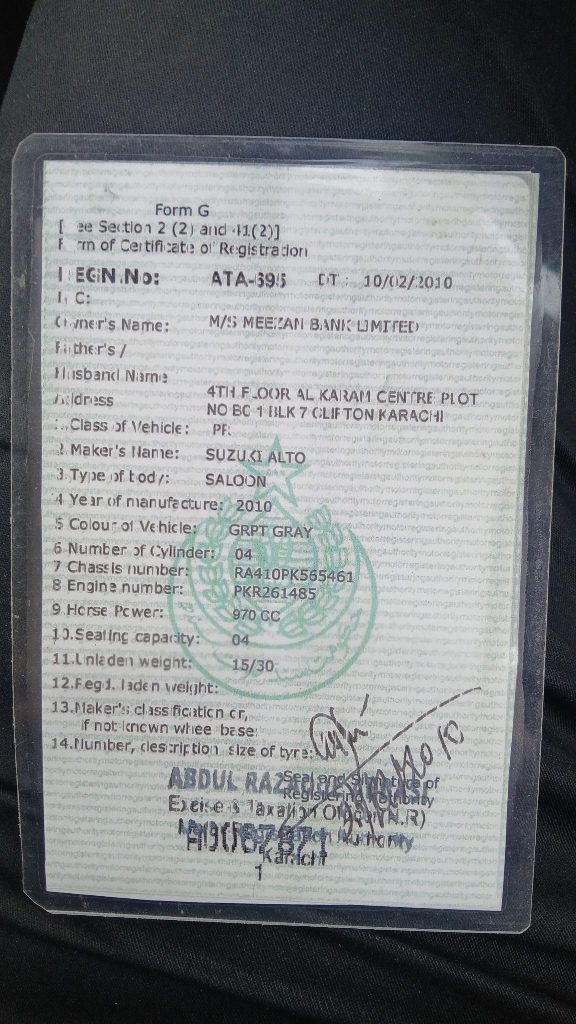 Form G
[ ee Section 2 (2) and 41(2)]
F rm of Certificate of Registration
EGN.No: ATA-695 DT: 10/02/2010
C:
Owner's Name: M/S MEEZAN BANK LIMITED
Father's /
Husband Name
Address 4TH FLOOR AL KARAM CENTRE PLOT
NO BC 1 BLK 7 CLIFTON KARACHI
1.Class of Vehicle: PR
2.Maker's Name: SUZUKI ALTO
3.Type of body: SALOON
4 Year of manufacture: 2010
5 Colour of Vehicle: GRPT GRAY
6 Number of Cylinder: 04
7 Chassis number: RA410PK565461
8 Engine number: PKR261485
9.Horse Power: 970 CC
10.Seating capacity: 04
11.Unladen weight: 15/30
12.Regd. laden weight:
13.Maker's classification or,
if not known wheel base:
14.Number, description size of tyre:
Seal and Signature of
ABDUL
Registering Authority
Excise & Taxation Officer (N.R)
Registration Authority
Karachi
1